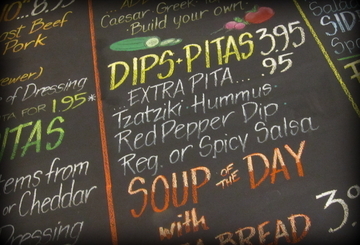 10...8.95
ast Beef
Pork
ewer)
s of Dressing
TA FOR 1.95*
ITAS
tems from
or Cheddar
Dressing
Caesar, Greek
Build your own!
DIPS + PITAS 3.95
...EXTRA PITA... .95
Tzatziki · Hummus·
Red Pepper Dip·
Reg. or Spicy Salsa
SOUP OF THE DAY
with
BREAD
3.
Sala
SID
Sma